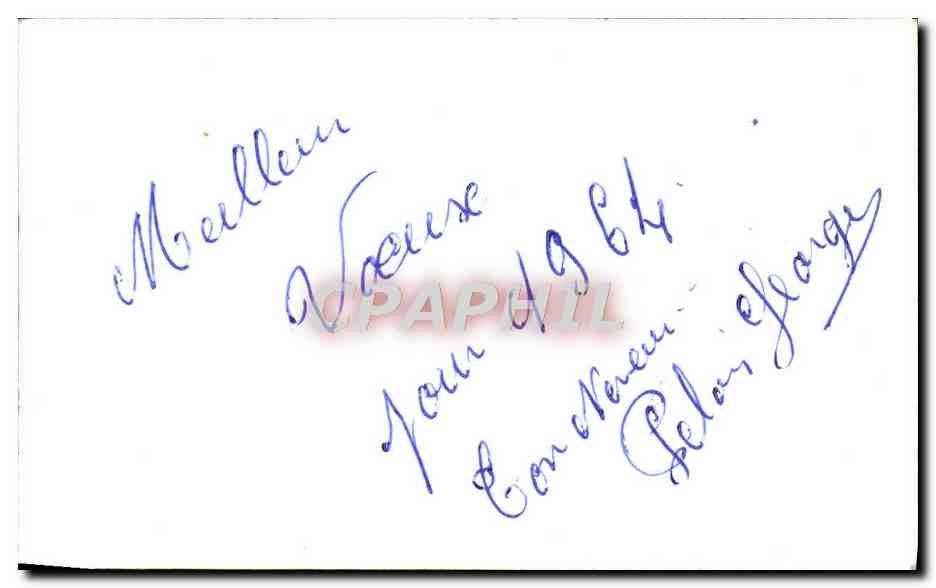 Meilleur
Vœux
pour 1964
Ton Neveu
Pelois George
CPAPHIL